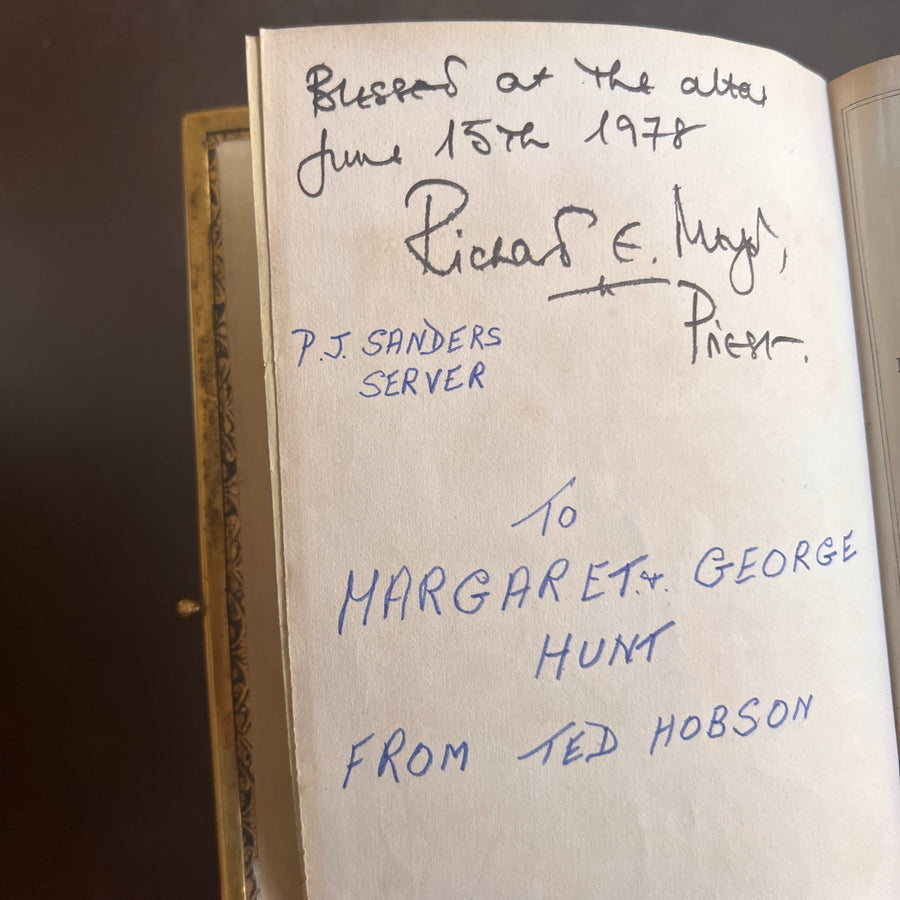 Blessed at the altar
June 15th 1978
Richard E.
Priest.
P.J. SANDERS
SERVER
TO
MARGARET. & . GEORGE
HUNT
FROM TED HOBSON